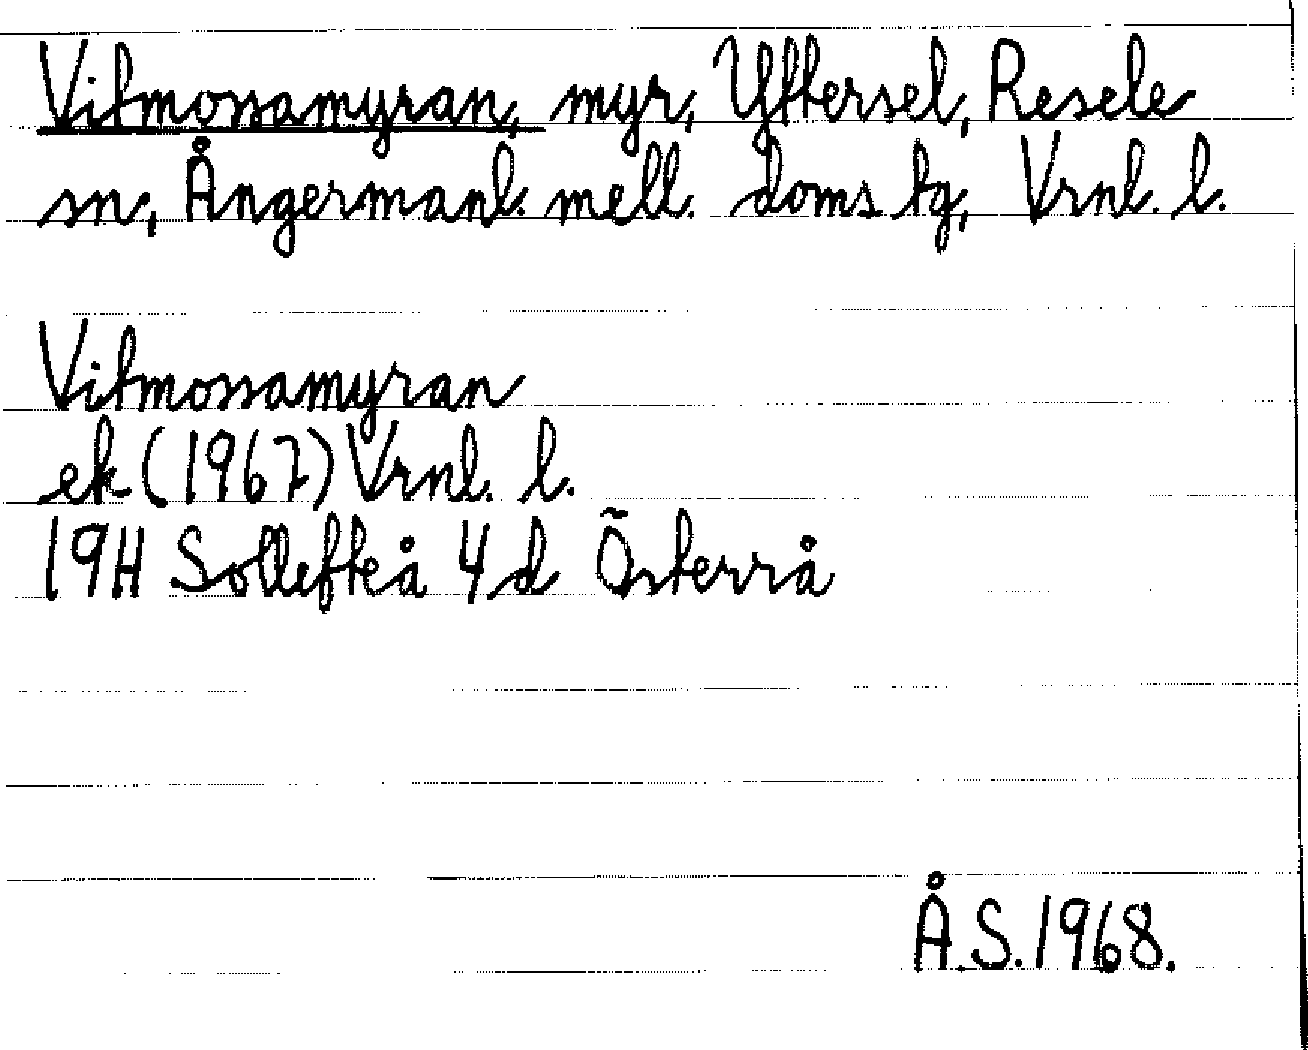 Vitmossamyran, myr, Yttersel, Resele
sn, Ångermanl. mell. doms. tg, Vrnl. l.
Vitmossamyran
ek (1967) Vrnl. l.
19H Sollefteå 4d Österrå
Å.S. 1968.